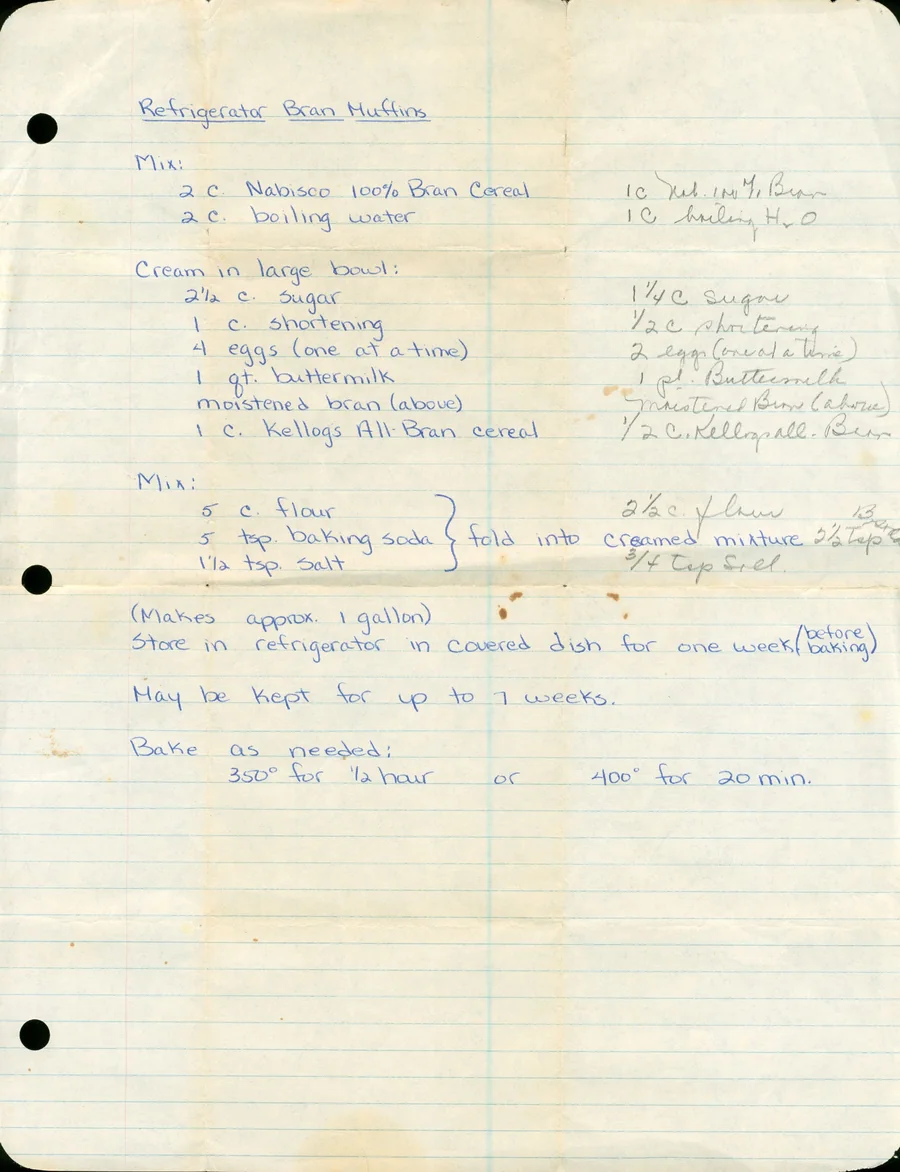 Refrigerator Bran Muffins
Mix:
2 c. Nabisco 100% Bran Cereal 1c Nab. 100% Bran
2 c. boiling water 1C boiling H2O
Cream in large bowl:
2 1/2 c. sugar 1 1/4 C sugar
1 c. shortening 1/2 c shortening
4 eggs (one at a time) 2 eggs (one at a time)
1 qt. buttermilk 1 pt. Buttermilk
moistened bran (above) moistened Bran (above)
1 c. Kellogs All-Bran cereal 1/2 C. Kellogs all-Bran
Mix:
5 c. flour 2 1/2 c. flour
5 tsp. baking soda } fold into creamed mixture 2 1/2 tsp
1 1/2 tsp. salt 3/4 tsp Salt.
(Makes approx. 1 gallon)
Store in refrigerator in covered dish for one week (before baking)
May be kept for up to 7 weeks.
Bake as needed:
350° for 1/2 hour or 400° for 20 min.